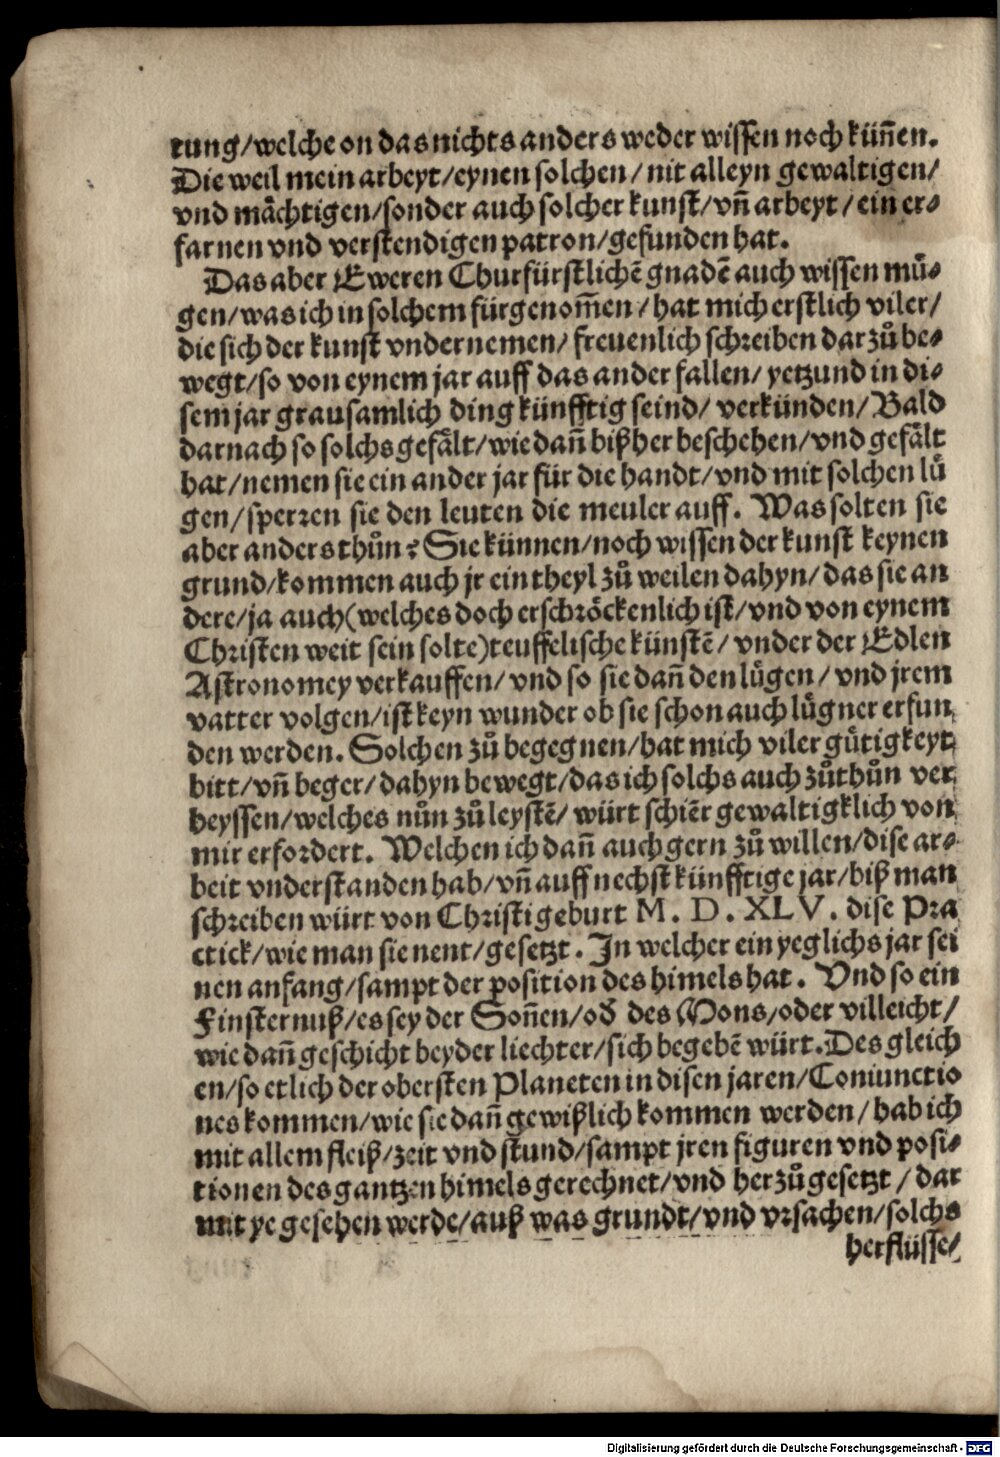 tung/welche on das nichts anders weder wissen noch küñen.
Die weil mein arbeyt/eynen solchen/nit alleyn gewaltigen/
vnd mächtigen/sonder auch solcher kunst/vñ arbeyt/ein er⸗
farnen vnd verstendigen patron/gefunden hat.
Das aber Eweren Churfürstlichẽ gnadẽ auch wissen mü⸗
gen/was ich in solchem fürgenom̃en/hat mich erstlich viler/
die sich der kunst vndernemen/freuenlich schreiben darzů be⸗
wegt/so von eynem jar auff das ander fallen/yetzund in di⸗
sem jar grausamlich ding künfftig seind/verkünden/Bald
darnach so solchs gefält/wie dañ bißher beschehen/vnd gefält
hat/nemen sie ein ander jar für die handt/vnd mit solchen lü
gen/sperren sie den leuten die meuler auff. Was solten sie
aber anders thůn? Sie künnen/noch wissen der kunst keynen
grund/kommen auch jr ein theyl zů weilen dahyn/das sie an
dere/ja auch(welches doch erschröckenlich ist/vnd von eynem
Christen weit sein solte)teuffelische künstẽ/vnder der Edlen
Astronomey verkauffen/vnd so sie dañ den lügen/vnd jrem
vatter volgen/ist keyn wunder ob sie schon auch lügner erfun
den werden. Solchen zů begegnen/hat mich viler gütigkeyt
bitt/vñ beger/dahyn bewegt/das ich solchs auch zůthůn ver
heyssen/welches nůn zů leystẽ/würt schiẽr gewaltigklich von
mir erfordert. Welchen ich dañ auch gern zů willen/dise ar⸗
beit vnderstanden hab/vñ auff nechst künfftige jar/biß man
schreiben würt von Christi geburt M. D. XLV. dise Pra
ctick/wie man sie nent/gesetzt. In welcher ein yeglichs jar sei
nen anfang/sampt der position des himels hat. Vnd so ein
Finsternuß/es sey der Soñen/oď des Mons/oder villeicht/
wie dañ geschicht beyder liechter/sich begebẽ würt. Des gleich
en/so etlich der obersten Planeten in disen jaren/Coniunctio
nes kommen/wie sie dañ gewißlich kommen werden/hab ich
mit allem fleiß/zeit vnd stund/sampt jren figuren vnd posi⸗
tionen des gantzen himels gerechnet/vnd herzů gesetzt/dar
mit ye gesehen werde/auß was grundt/vnd vrsachen/solchs
herflüsse/
Digitalisierung gefördert durch die Deutsche Forschungsgemeinschaft - DFG